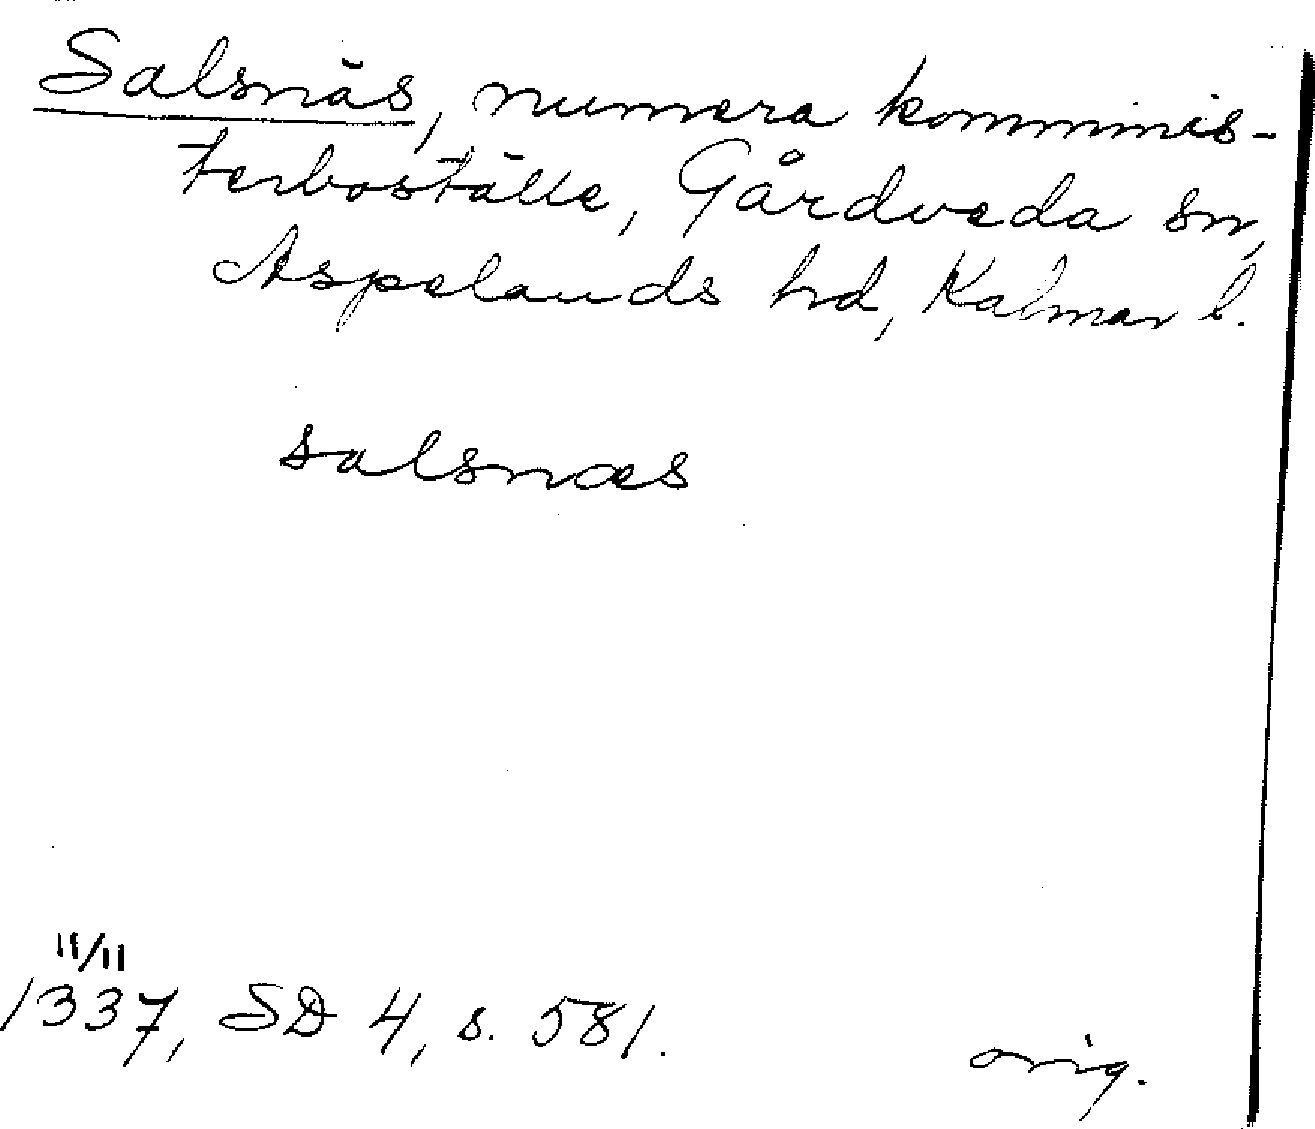 Salsnäs, numera komminis-
terboställe, Gårdveda sn,
Aspelands hd, Kalmar l.
salsnæs
11/11
1337, SD 4, s. 581.
orig.